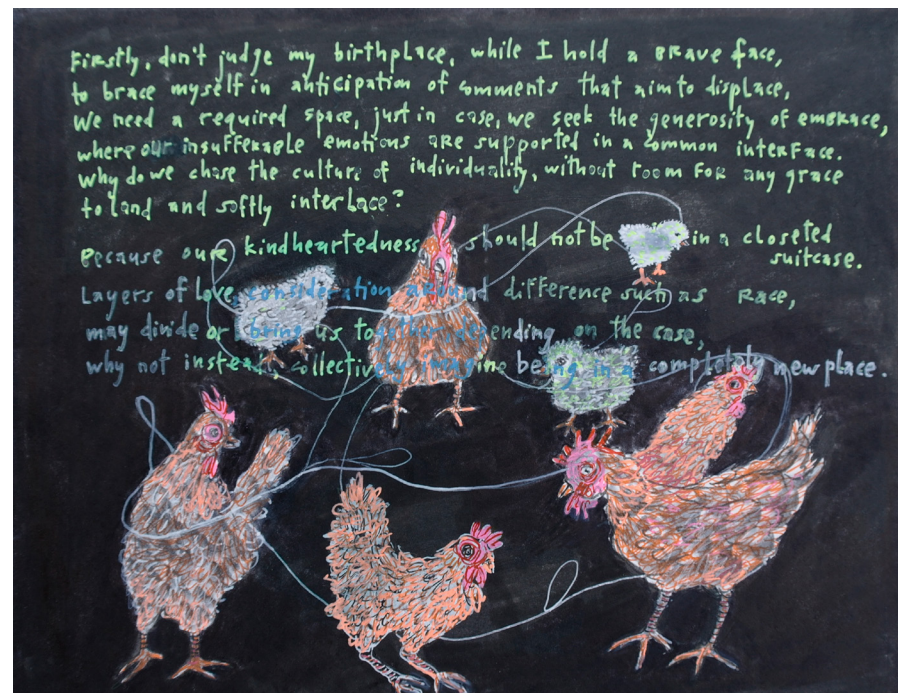 Firstly, don't judge my birthplace, while I hold a brave face,
to brace myself in anticipation of comments that aim to displace,
We need a required space, just in case, we seek the generosity of embrace,
where our insufferable emotions are supported in a common interface.
Why do we chase the culture of individuality, without room for any grace
to land and softly interlace?
Because our kindheartedness should not be in a closeted
suitcase.
Layers of love, consideration around difference such as race,
may divide or bring us together depending on the case,
why not instead, collectively imagine being in a completely new place.